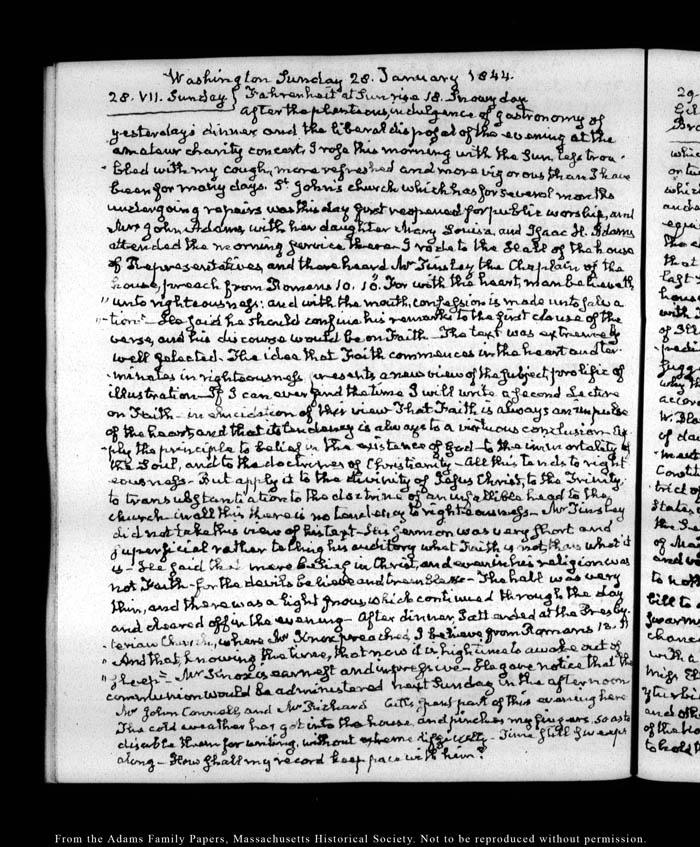 Washington Sunday 28. January 1844.
28. VII. Sunday } Fahrenheit at Sun rise 18. Snowy day
After the plenteous indulgence of gastronomy of
yesterday's dinner and the liberal disposal of the evening at the
amateur charity concert, I rose this morning with the Sun, less trou-
bled with my cough, more refreshed and more vigorous than I have
been for many days. St. John's church which has for several months
undergoing repairs was this day first reopened for public worship, and
Mrs John Adams with her daughter Mary Louisa, and Isaac H. Adams
attended the morning service there. I rode to the Hall of the house
of Representatives, and there heard Mr Tinsley the Chaplain of the
house, preach from Romans 10. 10. For with the heart, man believeth
" unto righteousness: and with the mouth, confession is made unto salva
"-tion" - He said he should confine his remarks to the first clause of the
verse, and his discourse would be on Faith - The text was extremely
well selected. The idea that Faith commences in the heart and ter-
-minates in righteousness, presents a new view of the subject prolific of
illustration - If I can ever find the time I will write a second Lecture
on Faith - in elucidation of this view That Faith is always an impulse
of the heart, and that its tendency is always to a virtuous conclusion - Ap-
-ply the principle to belief in the existence of God - to the immortality of
the Soul, and to the doctrines of Christianity - All this tends to right
eousness - But apply it to the divinity of Jesus Christ, to the Trinity,
to transubstantiation to the doctrine of an infallible head to the
church - in all this there is no tendency to righteousness - Mr Tinsley
did not take this view of his text - His Sermon was very short and
superficial rather telling his auditory what Faith is not, than what it
is - He said that mere belief in Christ, and even in his religion was
not Faith - for the devils believe and tremble - The hall was very
thin, and there was a light snow, which continued through the day
and cleared off in the evening - After dinner, I attended at the Presby-
-terian Church, where Mr Knox preached, I believe from Romans 13. 11
" And that, knowing the time, that now it is high time to awake out of
" sleep" - Mr Knox is earnest and impressive - He gave notice that the
communion would be administered next Sunday in the afternoon
Mr John Connell, and Mr Richard Cutts, spent part of this evening here
The cold weather has got into the house, and pinches my fingers, so as to
disable them for writing, without extreme difficulty - Time still sweeps
along - How shall my record keep pace with him?
From the Adams Family Papers, Massachusetts Historical Society. Not to be reproduced without permission.